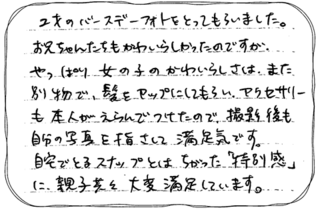 2才のバースデーフォトをとってもらいました。
お兄ちゃんたちもかわいらしかったのですが、
やっぱり女の子のかわいらしさは、また
別物で、髪をアップにしてもらい、アクセサリー
も本人がえらんでつけたので、撮影後も
自分の写真を指さして満足気です。
自宅でとるスナップとはちがった「特別感」
に、親子共々大変満足しています。